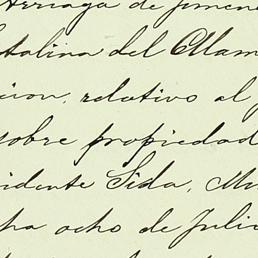 Arriaga de Jimen
talina del Alam
cion, relativo al j
sobre propiedad
idente Sida, Mu
ha ocho de Julio